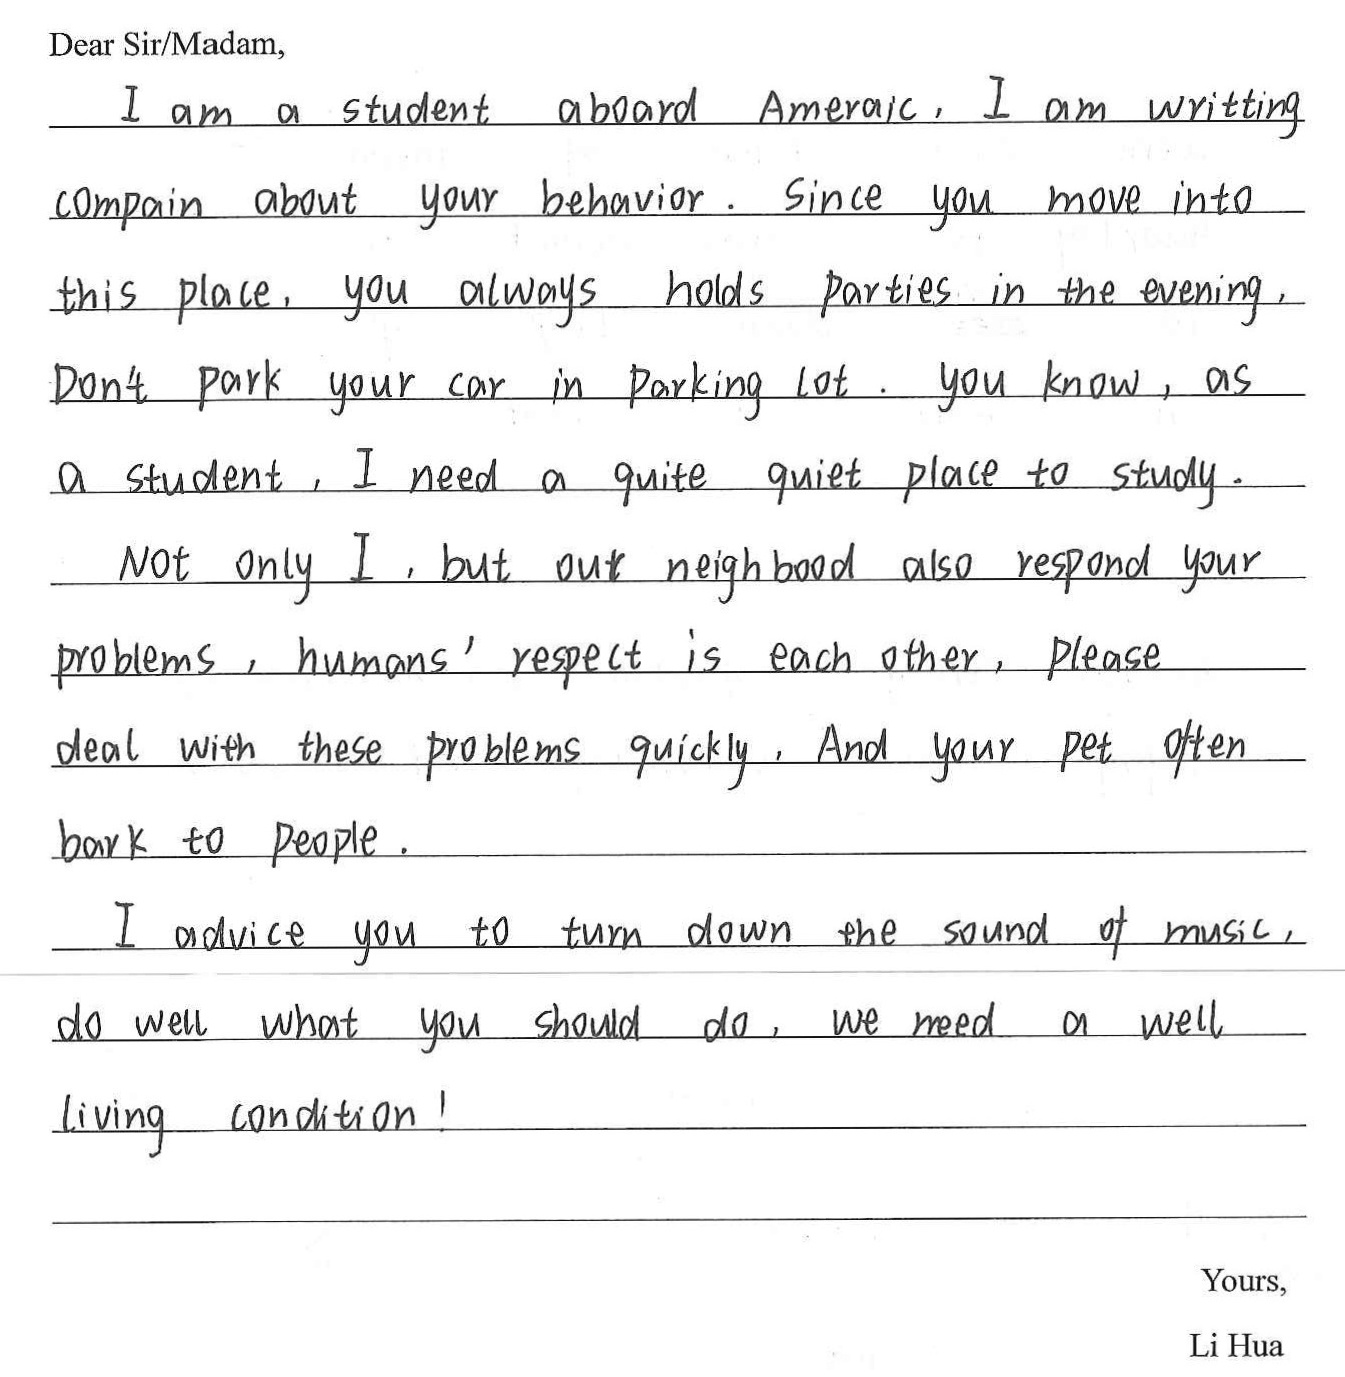 Dear Sir/Madam,
I am a student aboard Ameraic, I am writting
compain about your behavior. Since you move into
this place, you always holds parties in the evening,
Don't park your car in parking lot. you know, as
a student, I need a quite quiet place to study.
Not only I, but our neighbood also respond your
problems, humans' respect is each other, please
deal with these problems quickly, And your pet often
bark to people.
I advice you to turn down the sound of music,
do well what you should do, we need a well
living condition!
Yours,
Li Hua